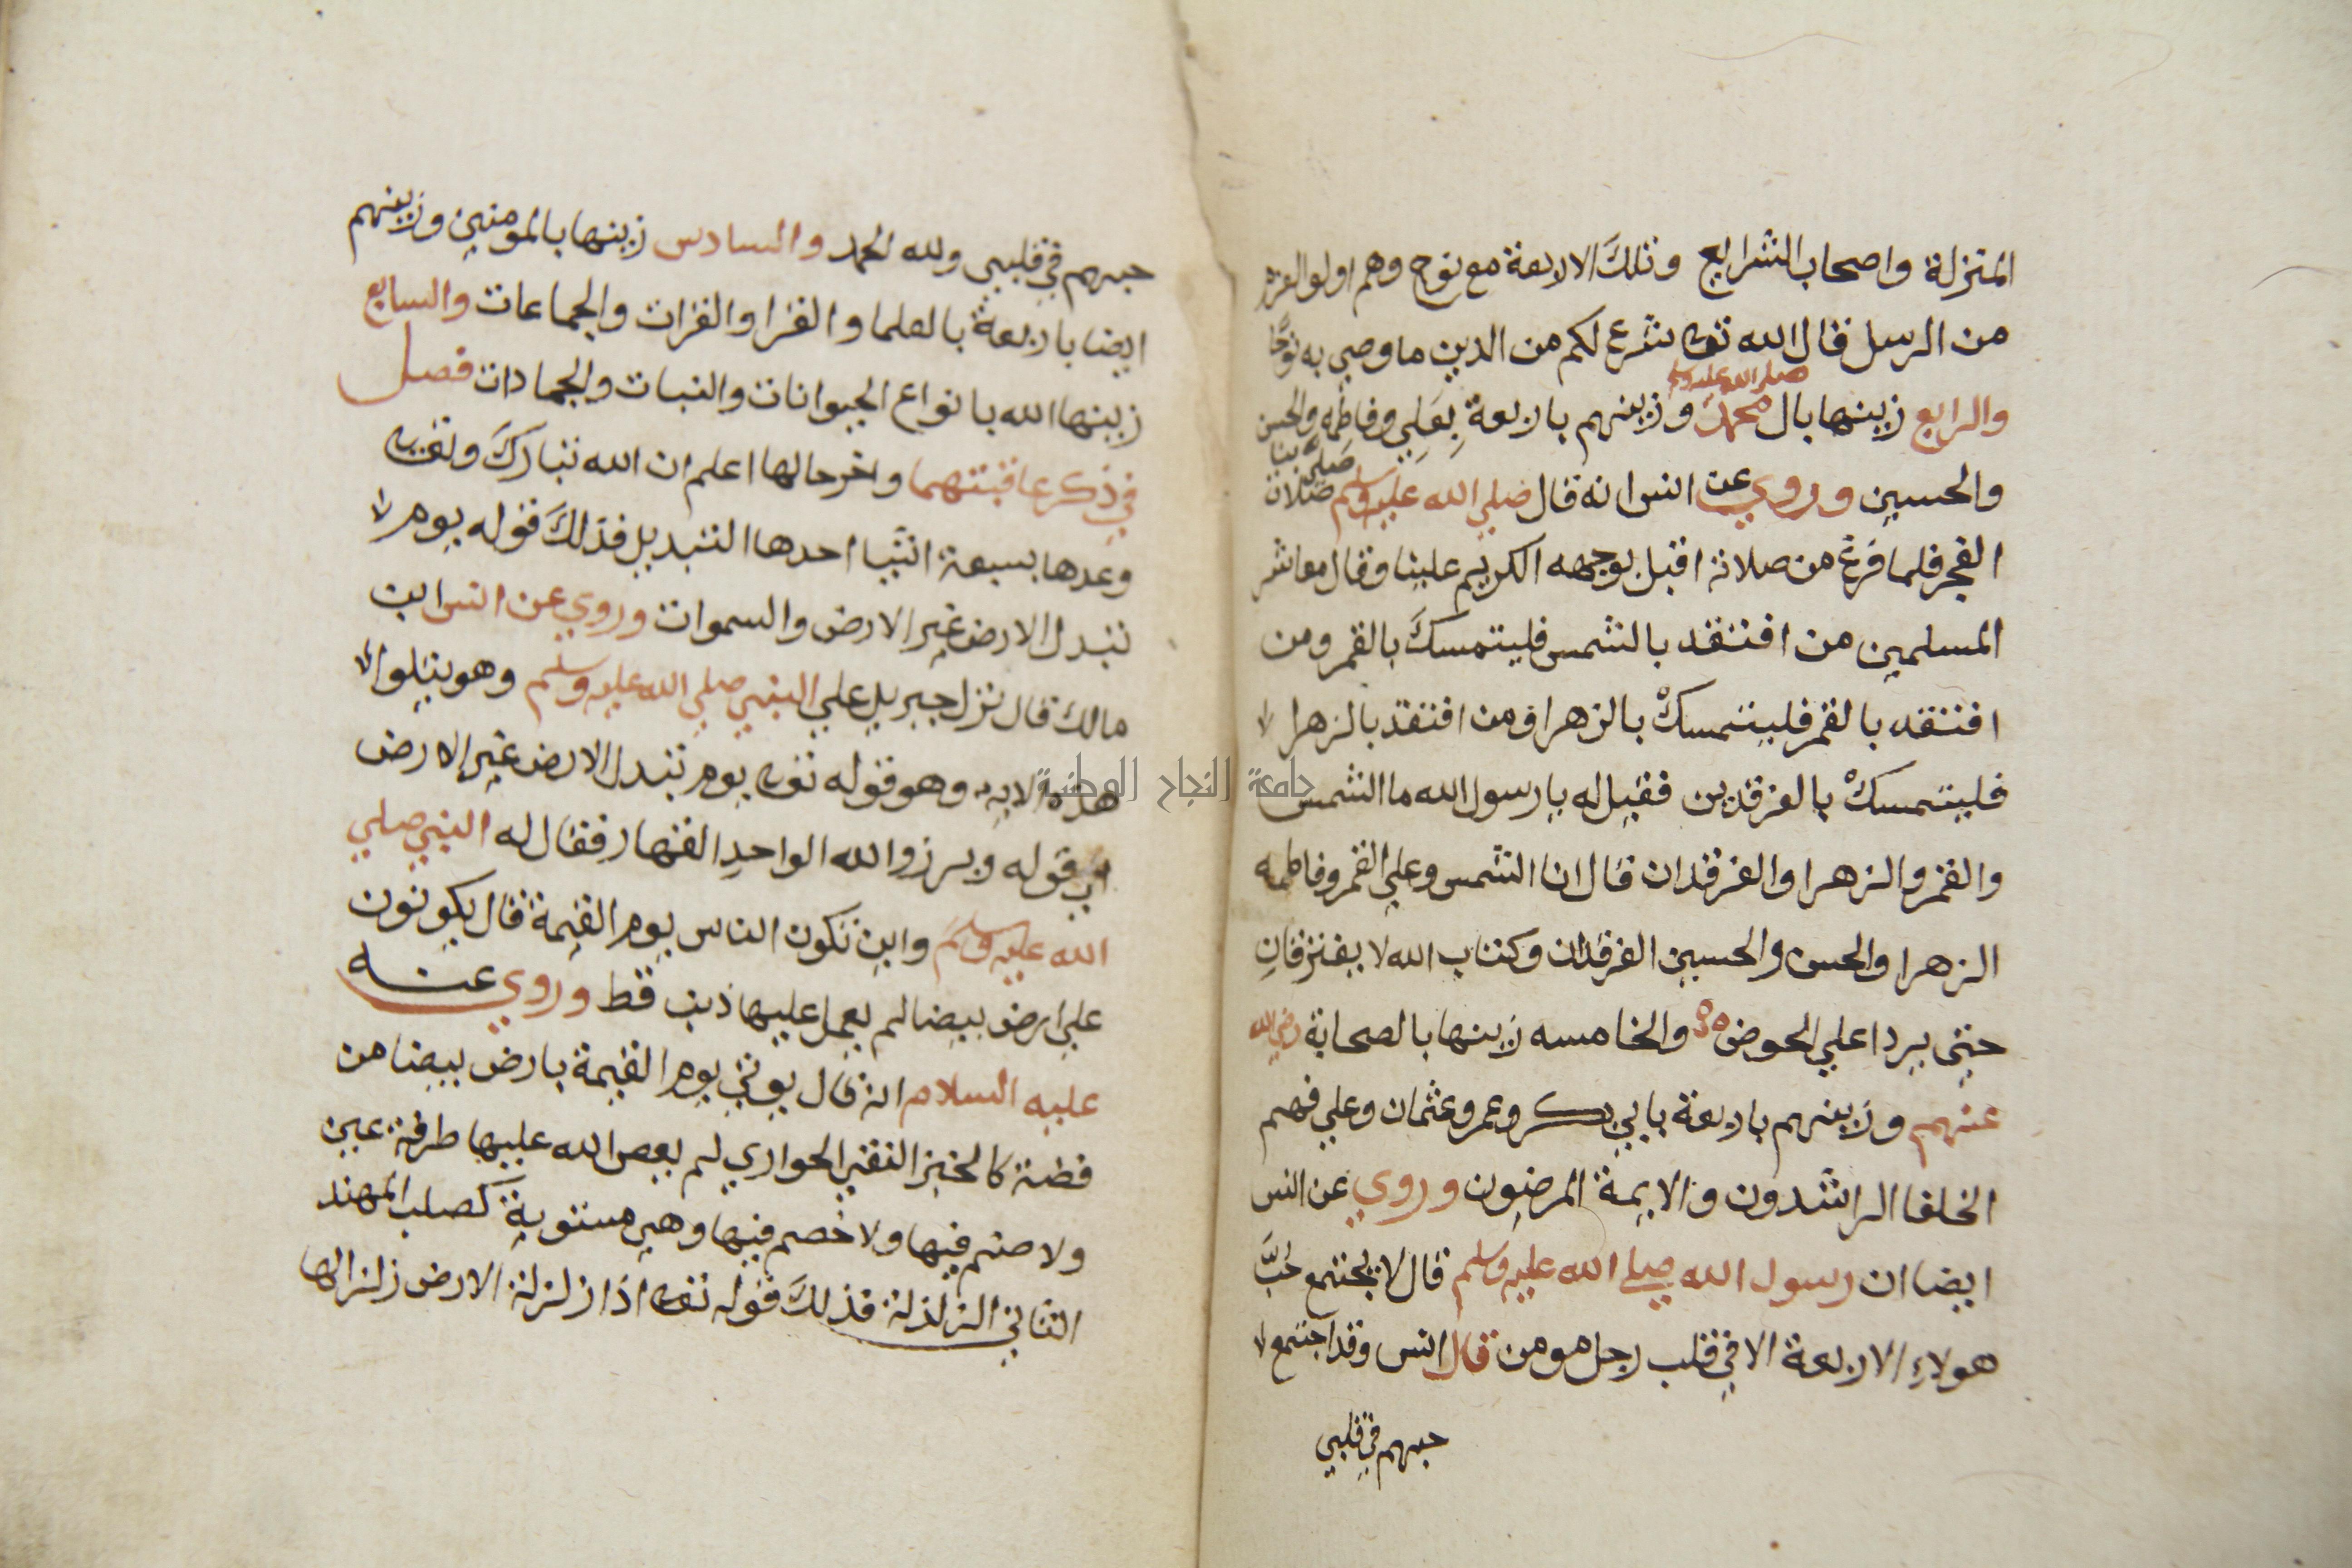 المنزلة واصحاب الشرايع وتلك الاربعة مع نوح وهم اولو العزم
من الرسل قال الله تعا شرع لكم من الدين ما وصي به نوحًا
والرابع زينها بال محمد صلي الله عليه وسلم وزينهم باربعة بعلي وفاطمه والحسن
والحسين وروي عن انس انه قال صلي بنا صلي الله عليه وسلم صلاة
الفجر فلما فرغ من صلاته اقبل بوجهه الكريم علينا وقال معاشر
المسلمين من افتقد بالشمس فليتمسك بالقمر ومن
افتقد بالقمر فليتمسك بالزهرا ومن افتقد بالزهرا
فليتمسك بالفرقدين فقيل له يا رسول الله ما الشمس
والقمر والزهرا والفرقدان قال انا الشمس وعلي القمر وفاطمه
الزهرا والحسن والحسين الفرقدان وكتاب الله لا يفترقانِ
حتي يردا علي الحوض والخامسه زينها بالصحابة رضي الله
عنهم وزينهم باربعة بابي بكر وعمر وعثمان وعلي فهم
الخلفا الراشدون والايمة المرضيون وروي عن انس
ايضا ان رسول الله صلي الله عليه وسلم قال لا يجتمع حُبَّ
هولاءِ الاربعة الا في قلب رجل مومن قال انس وقد اجتمع
حبهم في قلبي
حبهم في قلبي ولله الحمد والسادس زينها بالمومنين وزينهم
ايضا باربعة بالعلما والقرا والغزات والجماعات والسابع
زينها الله بانواع الحيوانات والنبات والجمادات فصل
في ذكر عاقبتهما واخر حالها اعلم ان الله تبارك وتعا
وعدها بسبعة اشيا احدها التبديل فذلك قوله يوم
تبدل الارض غير الارض والسموات وروي عن انس ابن
مالك قال نزل جبريل علي النبي صلي الله عليه وسلم وهو يتلوا
هذه الايه وهو قوله تعا يوم تبدل الارض غير الارض
الي قوله وبرزوا لله الواحد القهار فقال له النبي صلي
الله عليه وسلم واين تكون الناس يوم القيمة قال يكونون
علي ارض بيضا لم يعمل عليها ذنب قط وروي عنه
عليه السلام انه قال يوتي يوم القيمة بارض بيضا من
فضة كالخبز النقي الحواري لم يعص الله عليها طرفة عين
ولا صتم فيها ولا خصم فيها وهي مستوية كصلب المهند
الثاني الزلزلة فذلك قوله تعا اذا زلزلة الارض زلزالها
جامعة النجاح الوطنية